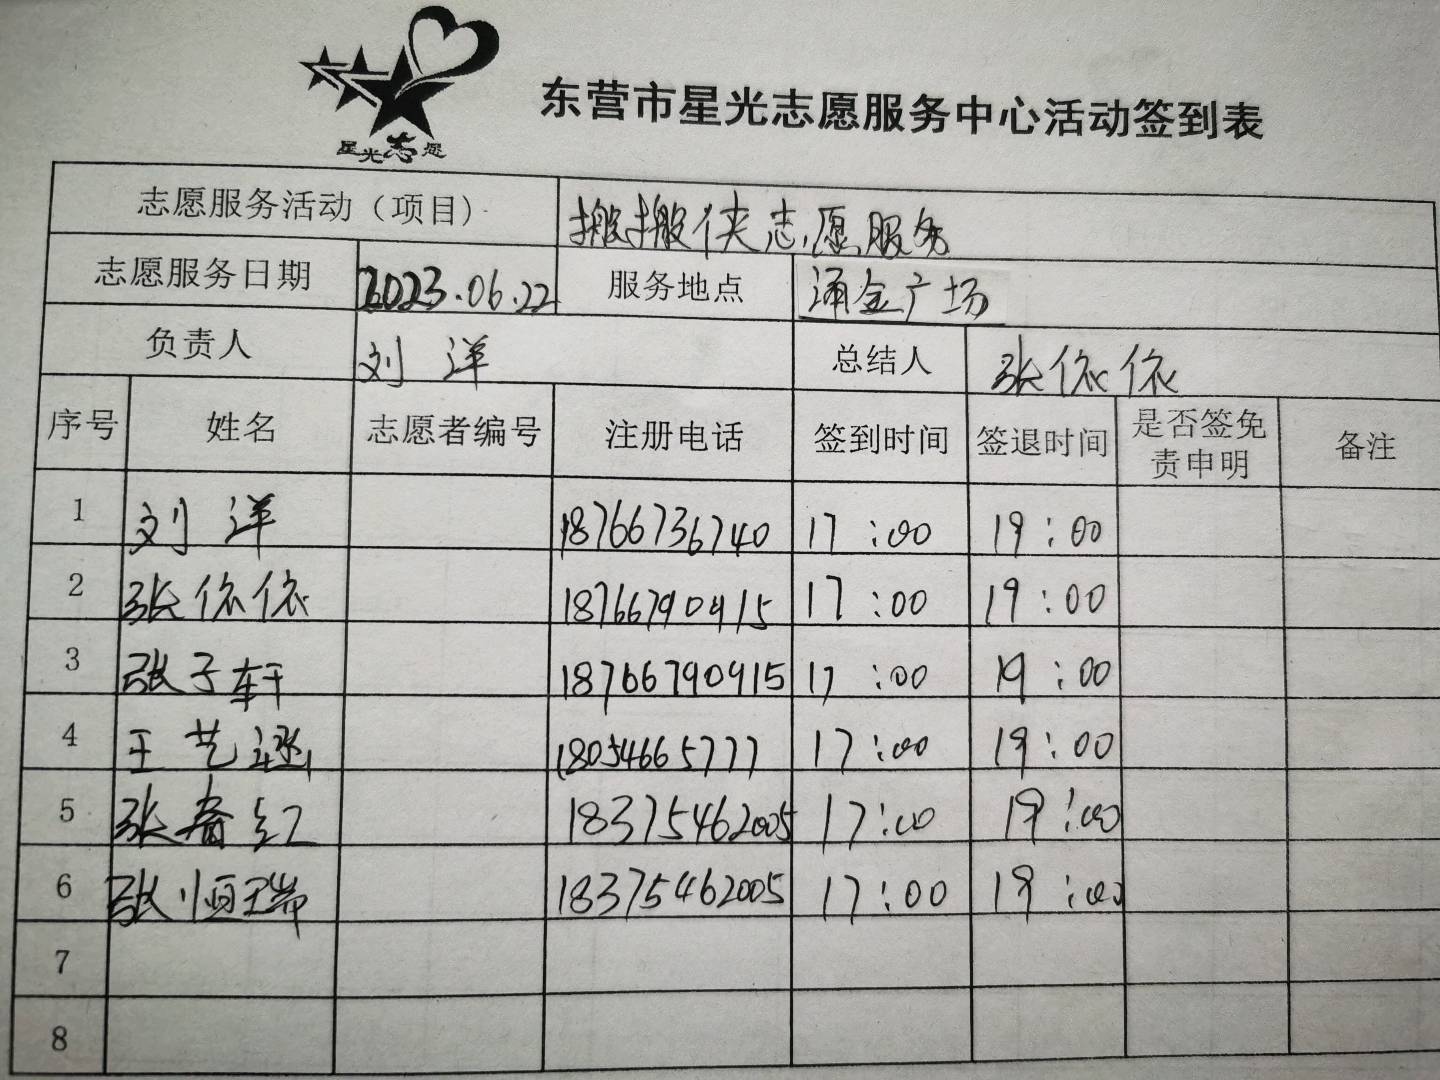 星光志愿
东营市星光志愿服务中心活动签到表
志愿服务活动（项目） 搬搬侠志愿服务
志愿服务日期 2023.06.22 服务地点 涌金广场
负责人 刘洋 总结人 张依依
序号 姓名 志愿者编号 注册电话 签到时间 签退时间 是否签免责申明 备注
1 刘洋 18766736740 17:00 19:00
2 张依依 18766790915 17:00 19:00
3 张子轩 18766790915 17:00 19:00
4 王艺涵 18054665777 17:00 19:00
5 张春红 18375462005 17:00 19:00
6 张恒瑞 18375462005 17:00 19:00
7
8